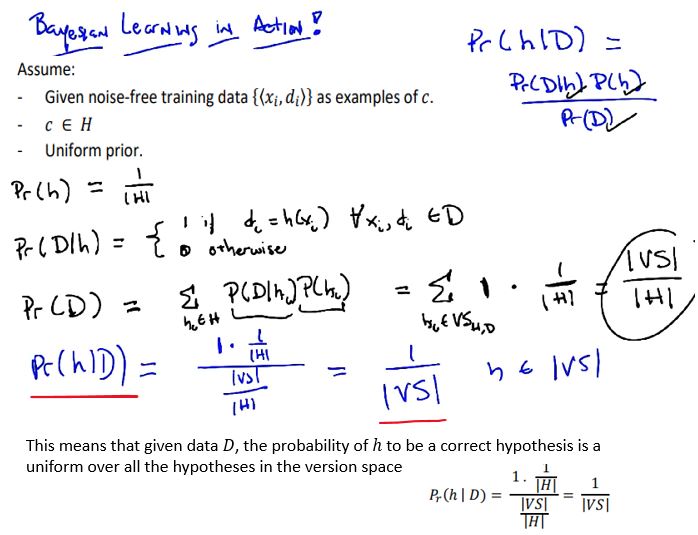 Bayesian Learning in Action!
Pr(h|D) = Pr(D|h) P(h) / Pr(D)
Assume:
- Given noise-free training data {⟨x_i, d_i⟩} as examples of c.
- c ∈ H
- Uniform prior.
Pr(h) = 1/|H|
Pr(D|h) = { 1 if d_i = h(x_i) ∀x_i, d_i ∈ D
0 otherwise
Pr(D) = Σ_{h_i ∈ H} P(D|h_i) P(h_i) = Σ_{h_i ∈ VS_{H,D}} 1 · 1/|H| = |VS|/|H|
Pr(h|D) = (1 · 1/|H|) / (|VS|/|H|) = 1/|VS| h ∈ |VS|
This means that given data D, the probability of h to be a correct hypothesis is a
uniform over all the hypotheses in the version space
P_r(h | D) = (1. 1/|H|) / (|VS|/|H|) = 1/|VS|